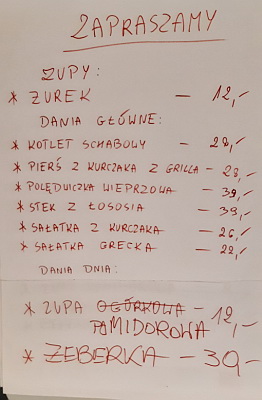 ZAPRASZAMY
ZUPY:
* ŻUREK — 12,-
DANIA GŁÓWNE:
* KOTLET SCHABOWY — 28,-
* PIERŚ Z KURCZAKA Z GRILLA — 28,-
* POLĘDWICZKA WIEPRZOWA — 39,-
* STEK Z ŁOSOSIA — 39,-
* SAŁATKA Z KURCZAKA — 26,-
* SAŁATKA GRECKA — 22,-
DANIA DNIA:
* ZUPA OGÓRKOWA — 12,-
POMIDOROWA
* ŻEBERKA — 39-